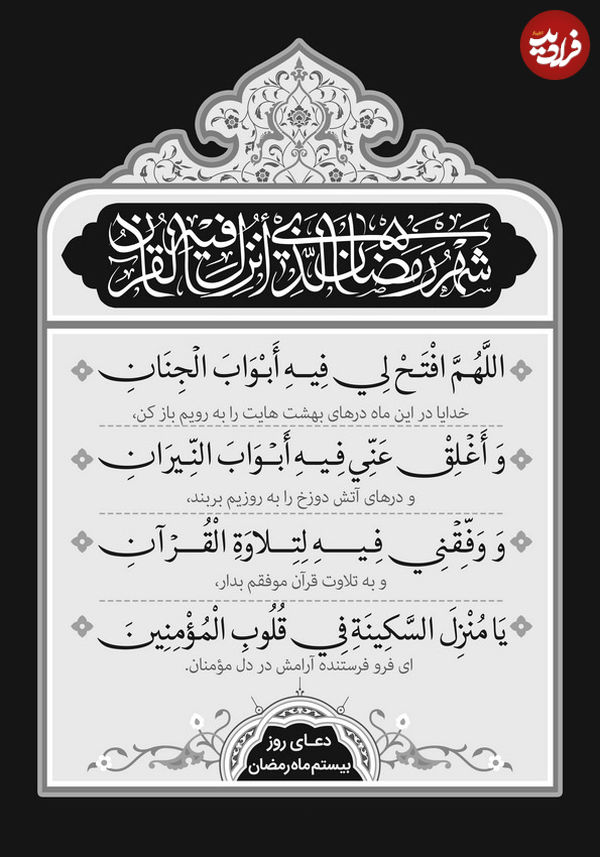 اخبار
فرادید
شَهْرُ رَمَضَانَ الَّذِي أُنْزِلَ فِيهِ الْقُرْآن
اللَّهُمَّ افْتَحْ لِي فِيهِ أَبْوَابَ الْجِنَانِ
خدایا در این ماه درهای بهشت هایت را به رویم باز کن،
وَ أَغْلِقْ عَنِّي فِيهِ أَبْوَابَ النِّيرَانِ
و درهای آتش دوزخ را به روزیم بربند،
وَ وَفِّقْنِي فِيهِ لِتِلاوَةِ الْقُرْآنِ
و به تلاوت قرآن موفقم بدار،
يَا مُنْزِلَ السَّكِينَةِ فِي قُلُوبِ الْمُؤْمِنِينَ
ای فرو فرستنده آرامش در دل مؤمنان.
دعای روز
بیستم ماه رمضان